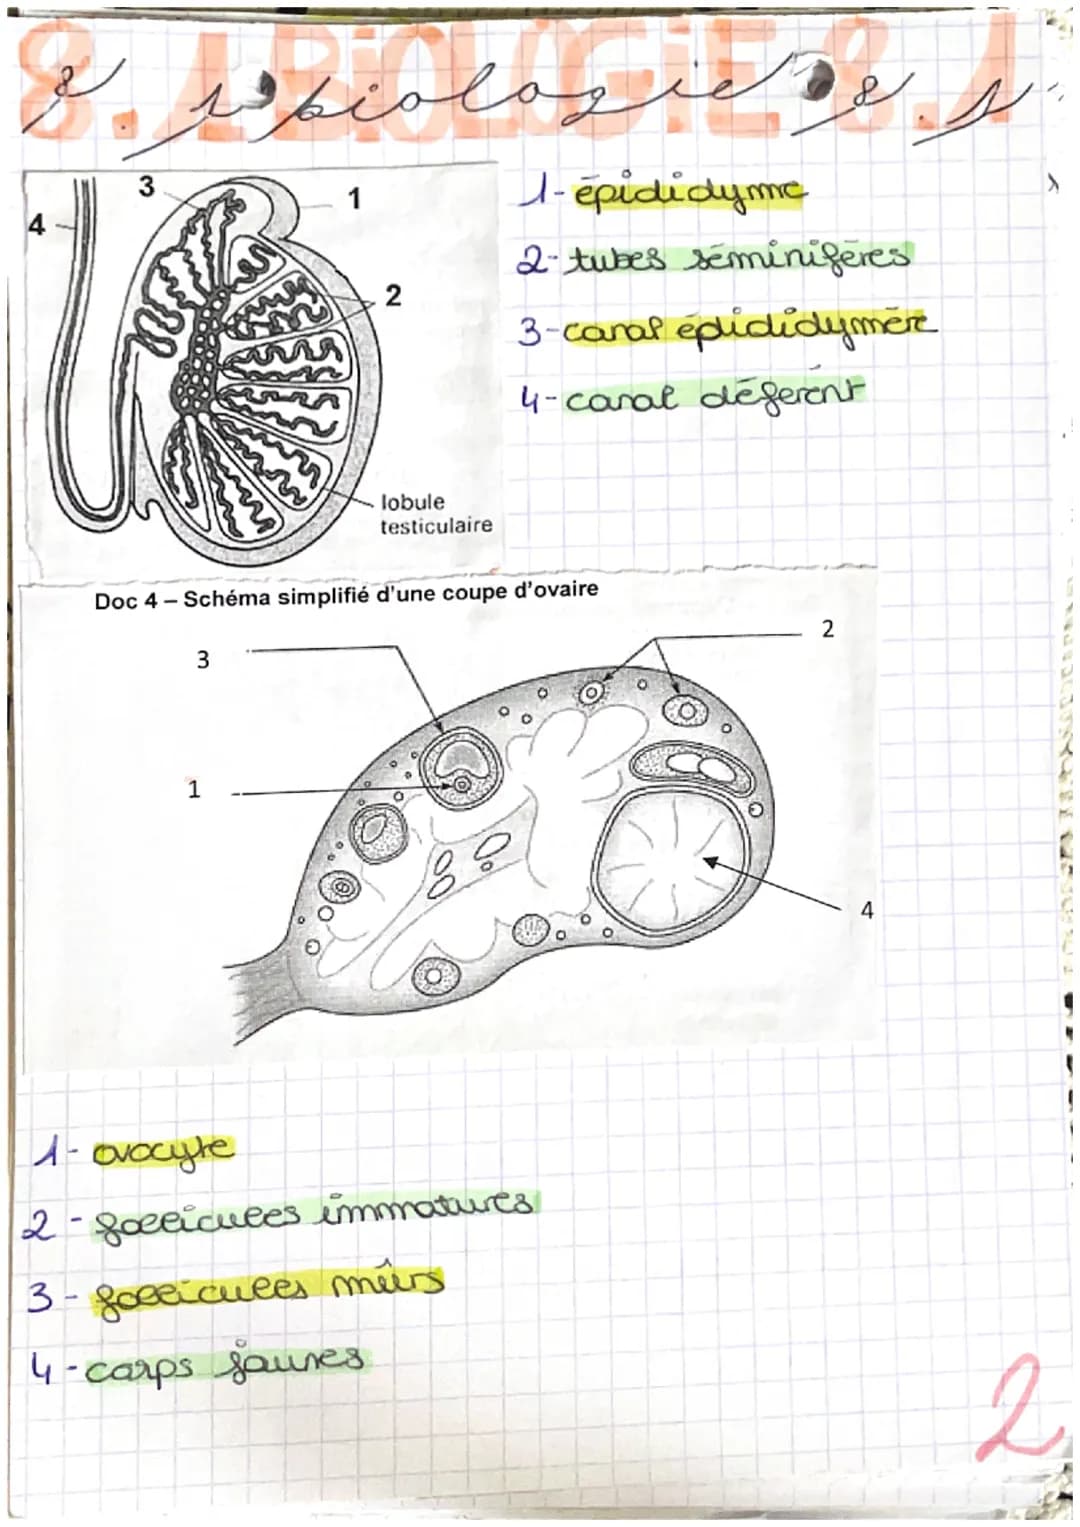 8.1 BiOLOGiE 8.1
8.1 biologie 8.1
3
1
4
2
lobule
testiculaire
1- épididyme
2- tubes séminifères
3- canal épididymère
4- canal déférent
Doc 4 – Schéma simplifié d'une coupe d'ovaire
2
3
1
4
1- ovocyte
2 - follicules immatures
3 - follicules mûrs
4 - corps jaunes
2